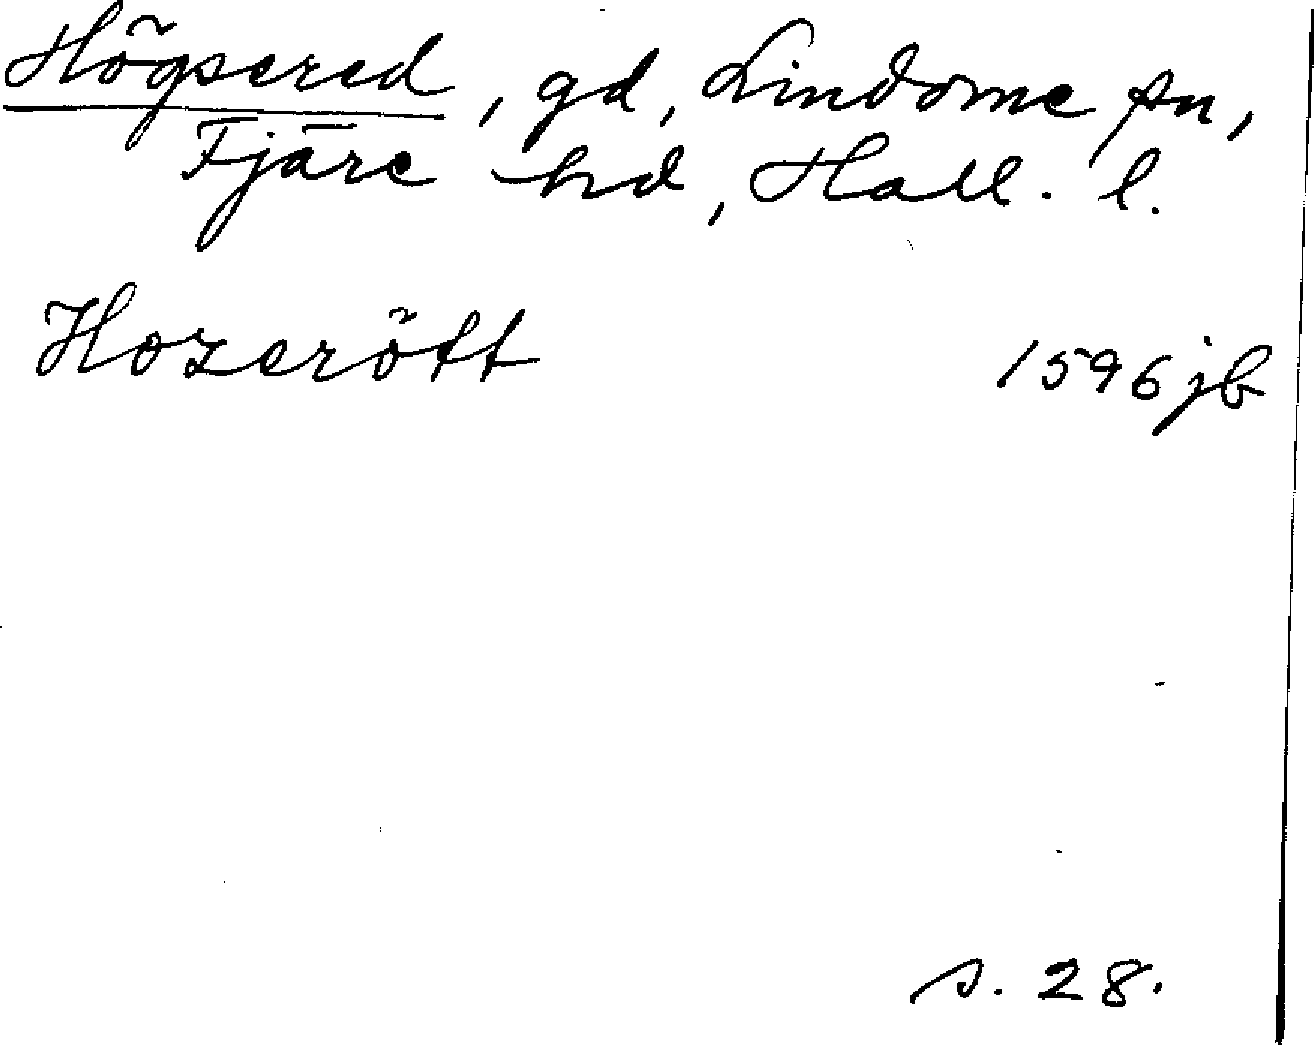 Högsered, gd, Lindome sn,
Fjäre hd, Hall. l.
Hozerött 1596 jb
s. 28.